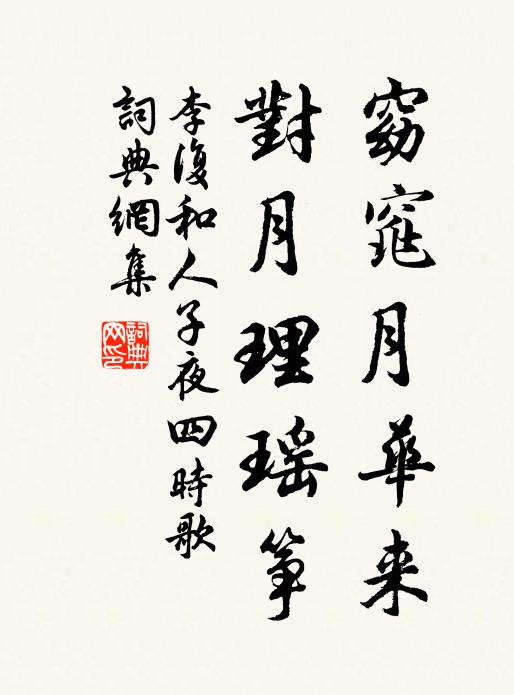 窈窕月華来
對月理瑶箏
李復和人子夜四時歌
詞典網集
詞典网印